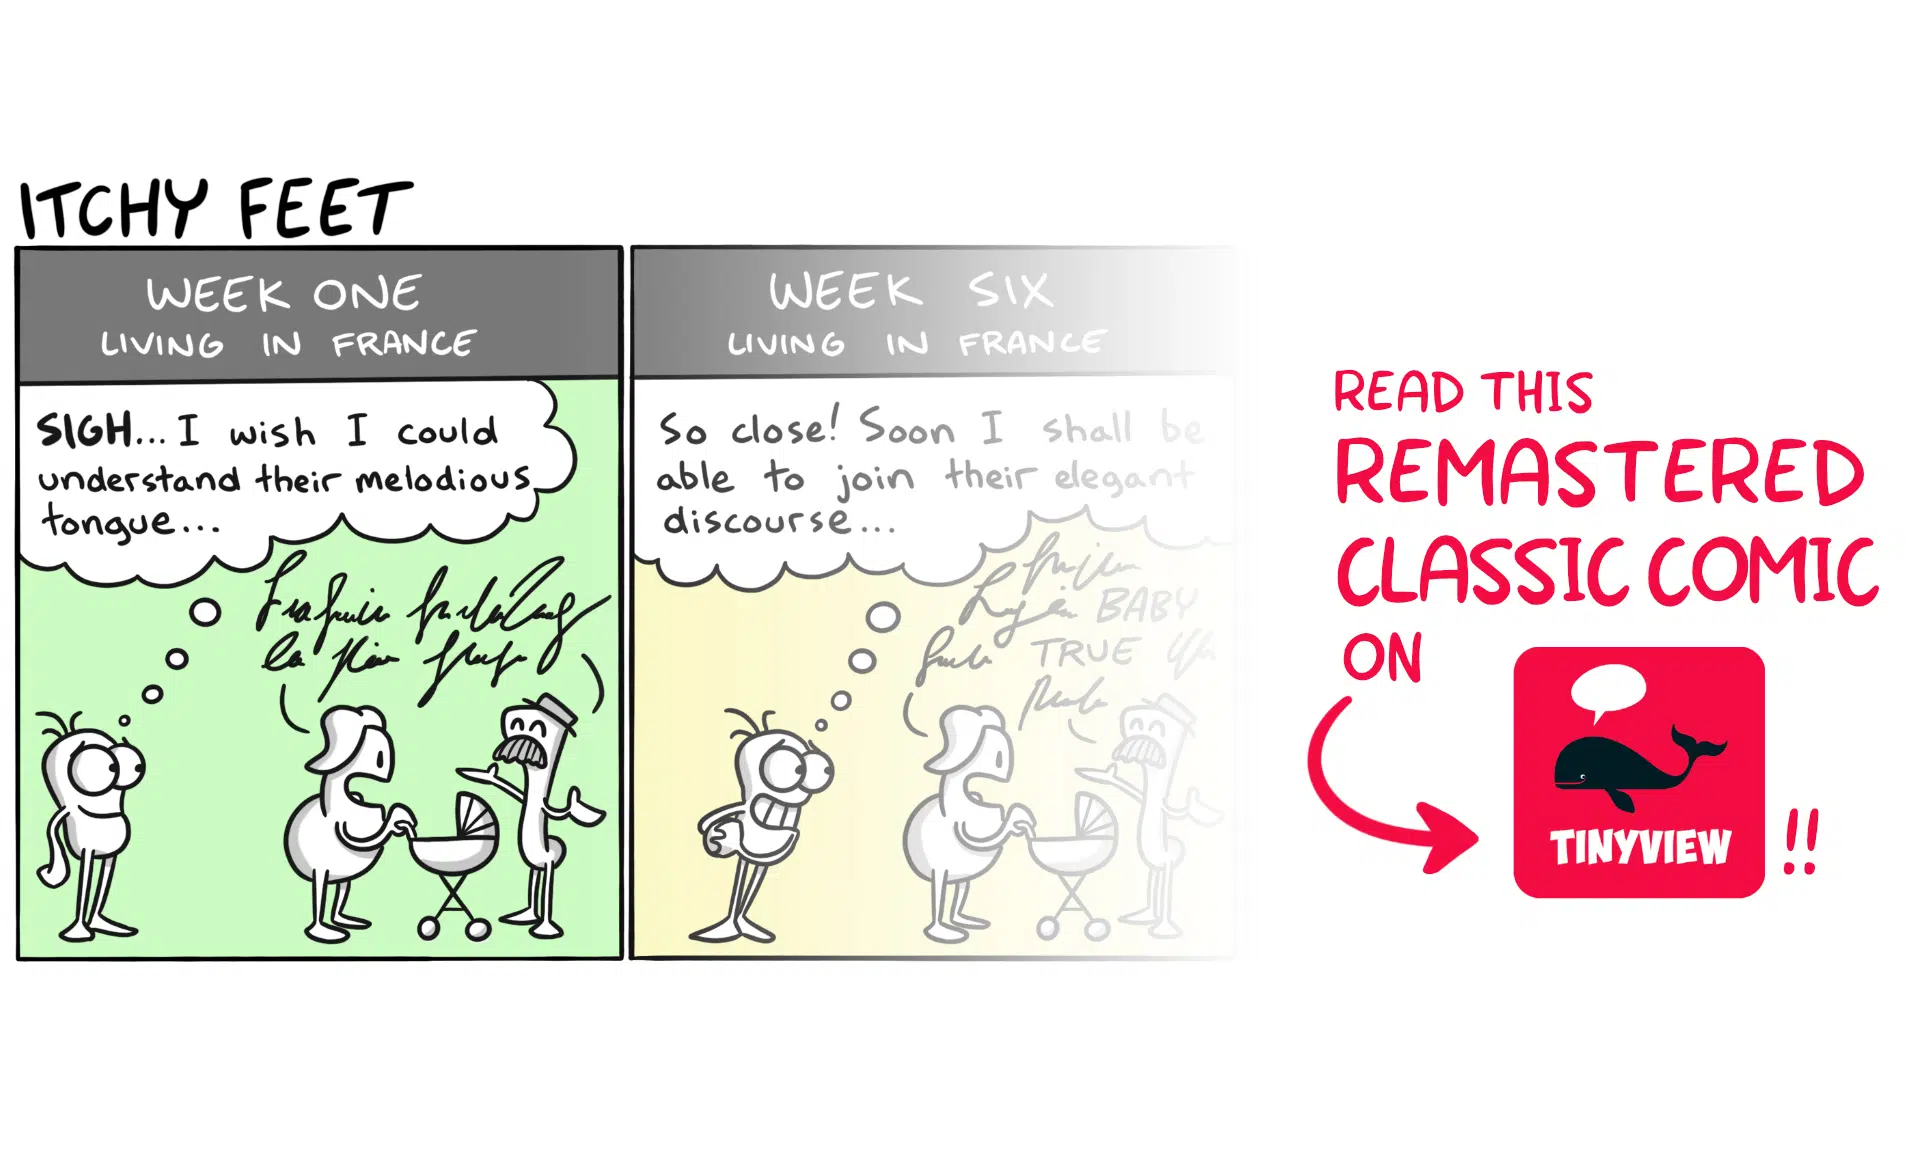 ITCHY FEET
WEEK ONE
LIVING IN FRANCE
SIGH... I wish I could
understand their melodious
tongue...
WEEK SIX
LIVING IN FRANCE
So close! Soon I shall be
able to join their elegant
discourse...
BABY
TRUE
READ THIS
REMASTERED
CLASSIC COMIC
ON
TINYVIEW
!!